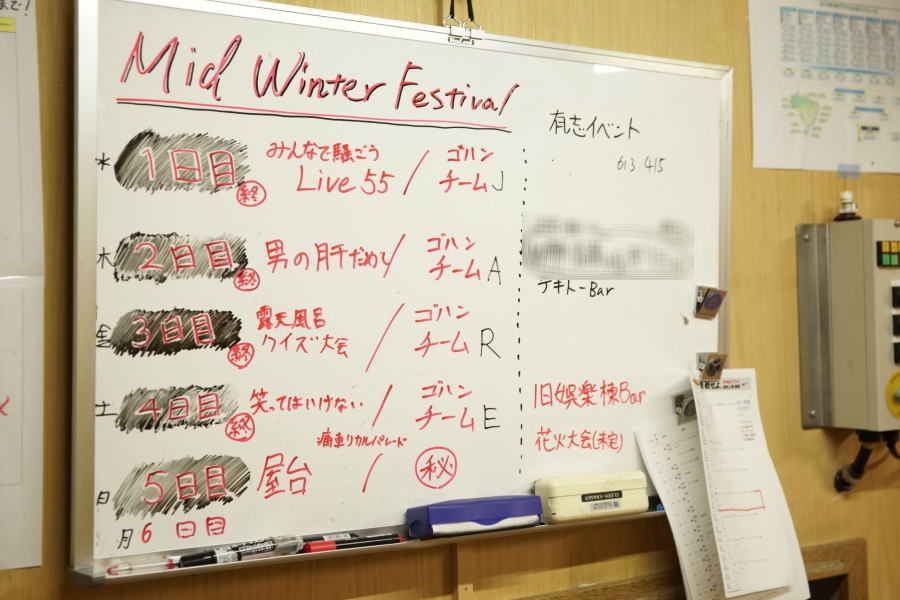 Mid Winter Festival
水 1日目 終 みんなで騒ごう Live 55 / ゴハン チームJ
木 2日目 終 男の肝だめし/ ゴハン チームA
金 3日目 終 露天風呂 クイズ大会 / ゴハン チームR
土 4日目 終 笑ってはいけない / ゴハン チームE
痛車リカルパレード
日 5日目 屋台 / 秘
月 6日目
有志イベント
613.415
テキトーBar
旧娯楽棟Bar
花火大会(未定)